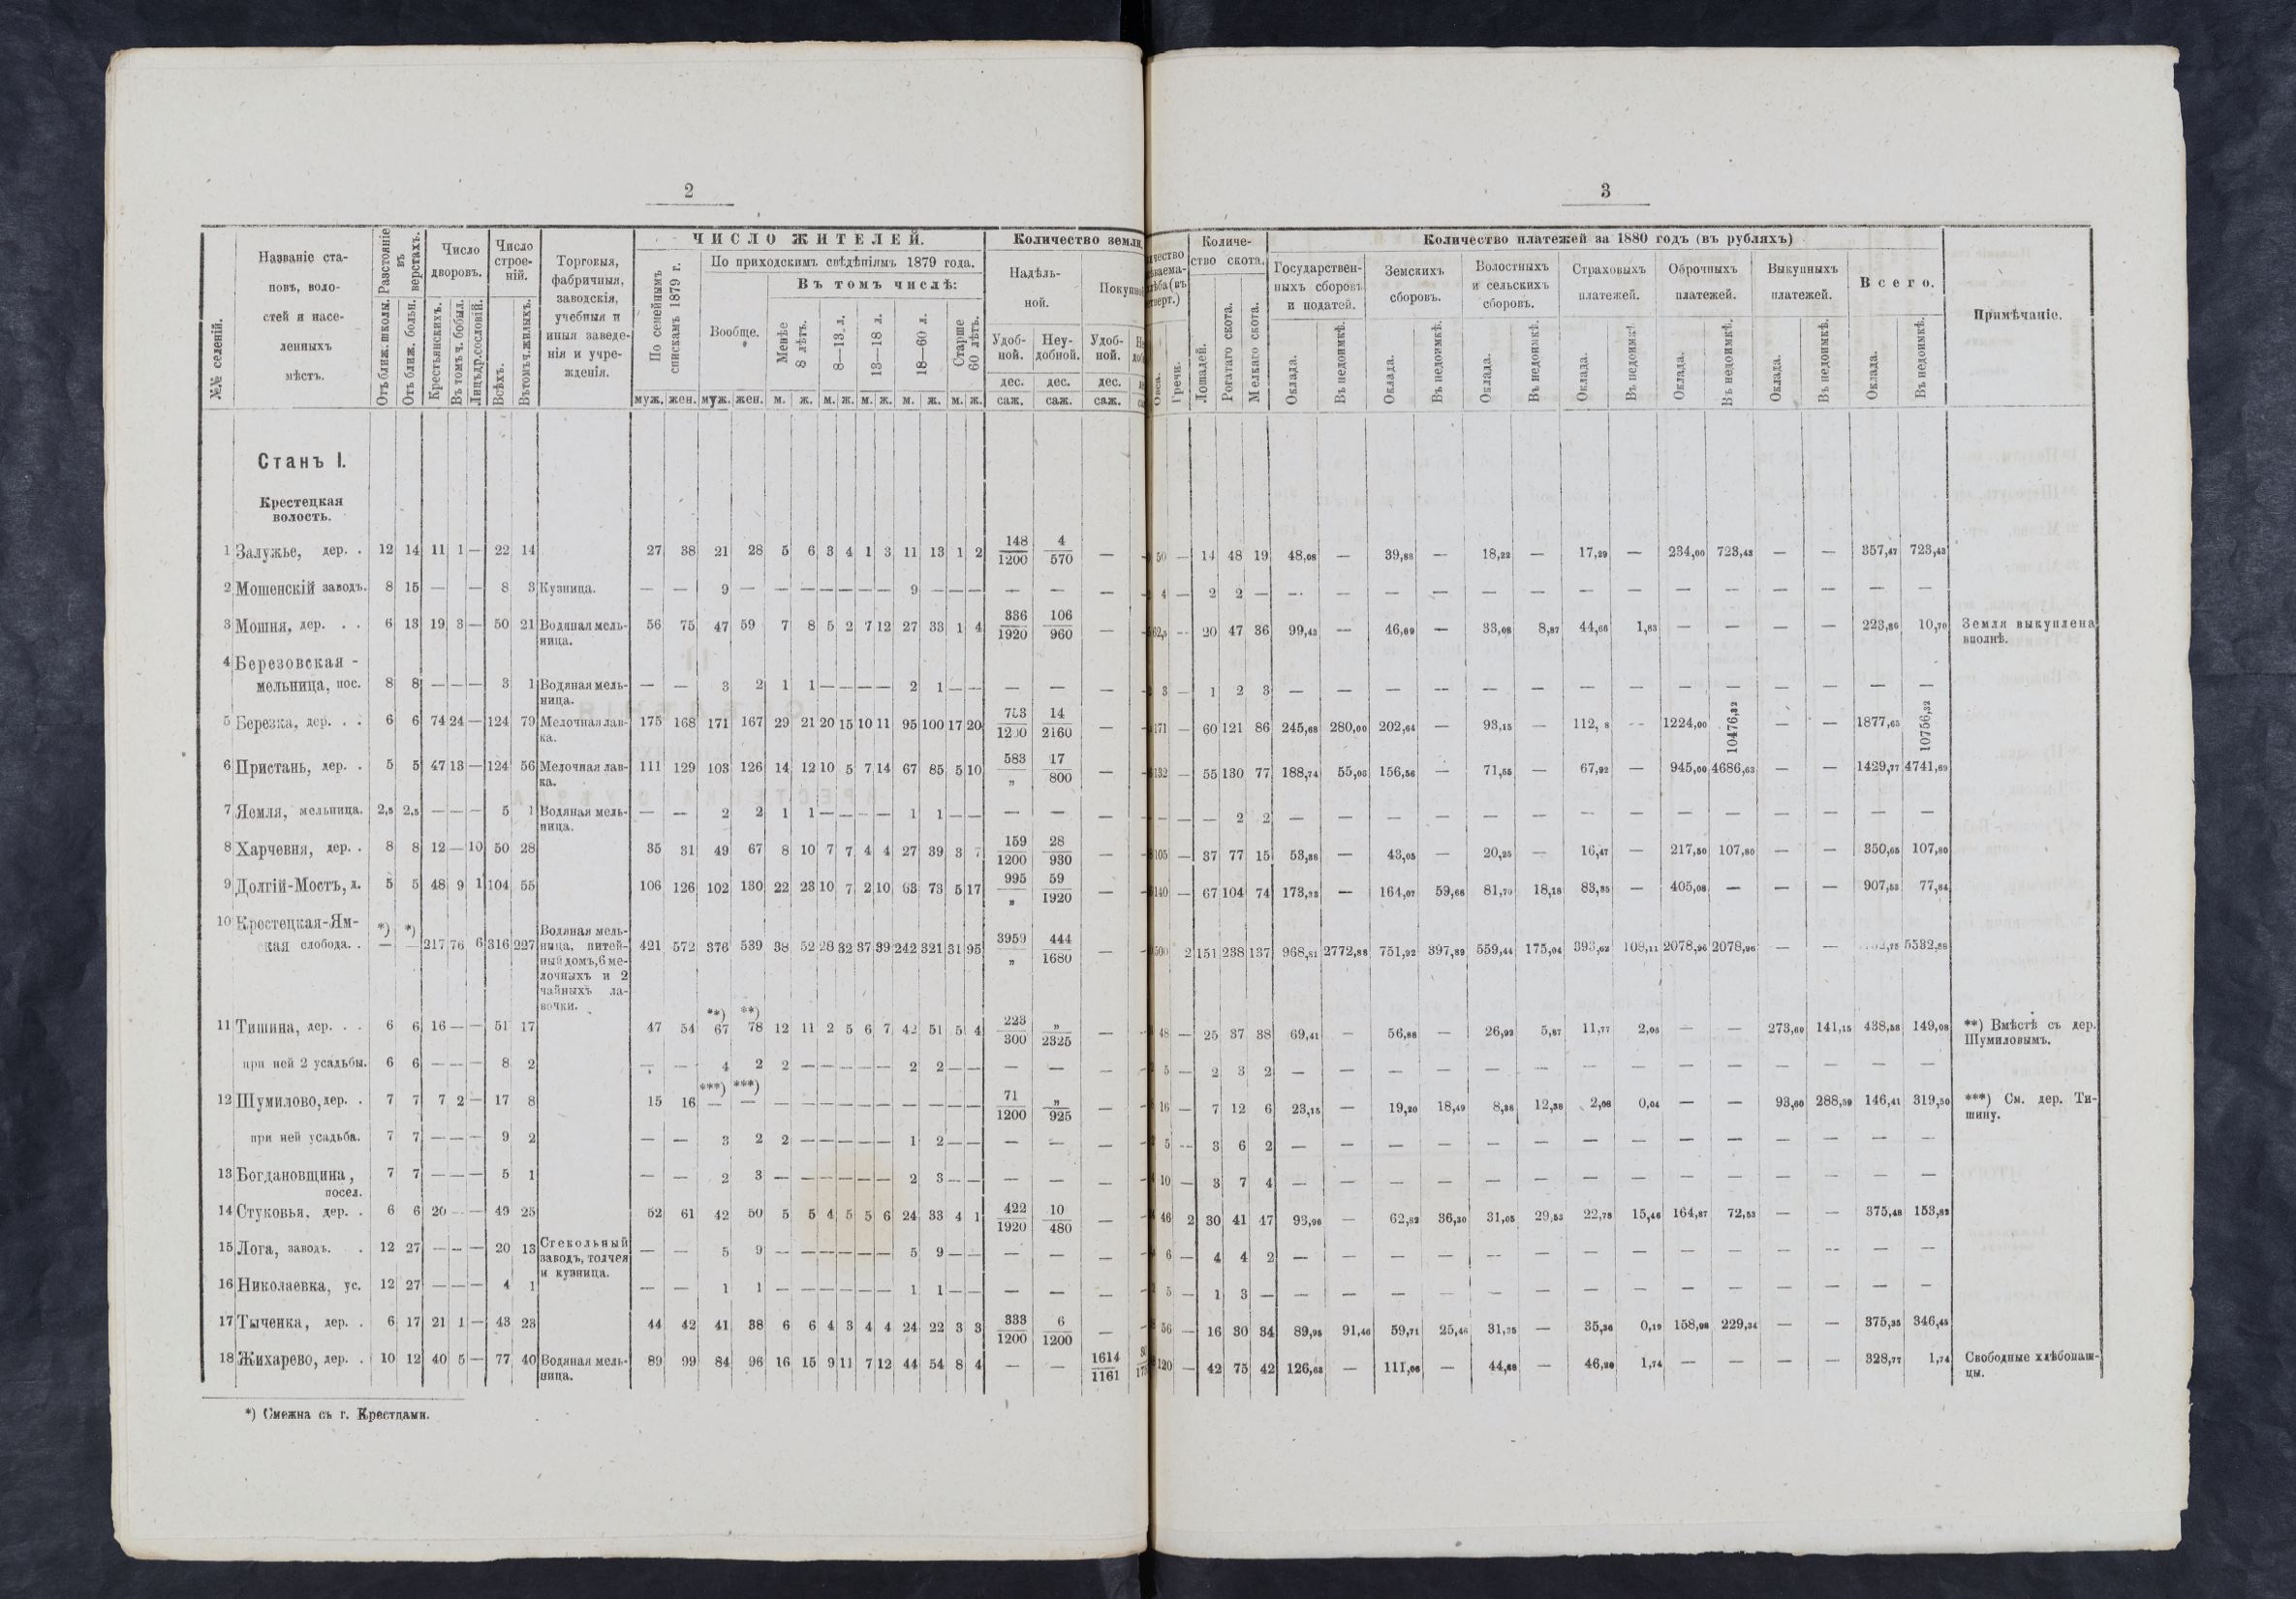 2
№№ селеній.
Названіе становъ, волостей и населенныхъ мѣстъ.
Разстояніе въ верстахъ.
Отъ ближ. школы.
Отъ ближ. больн.
Число дворовъ.
Крестьянскихъ.
Въ томъ ч. бобыл.
Лицъ др. сословій.
Число строеній.
Всѣхъ.
Въ томъ ч. жилыхъ.
Торговыя, фабричныя, заводскія, учебныя и иныя заведенія и учрежденія.
ЧИСЛО ЖИТЕЛЕЙ.
По семейнымъ спискамъ 1879 г.
По приходскимъ свѣдѣніямъ 1879 года.
Вообще.
Въ томъ числѣ:
Менѣе 8 лѣтъ.
8—13. л.
13—18 л.
18—60 л.
Старше 60 лѣтъ.
муж. жен. муж. жен. м. ж. м. ж. м. ж. м. ж. м. ж.
Количество земли,
Надѣльной.
Удобной.
Неудобной.
Удобной.
дес. дес. дес.
саж. саж. саж.
Станъ I.
Крестецкая
волость.
1 Залужье, дер. . 12 14 11 1 — 22 14 27 38 21 28 5 6 3 4 1 3 11 13 1 2 148/1200 4/570 —
2 Мошенскій заводъ. 8 15 — — 8 3 Кузница. — — 9 — — — — — — — 9 — — — — — —
3 Мошня, дер. . . 6 13 19 3 — 50 21 Водяная мельница. 56 75 47 59 7 8 5 2 7 12 27 33 1 4 336/1920 106/960 —
4 Березовская -
мельница, пос. 8 8 — — — 3 1 Водяная мельница. — — 3 2 1 1 — — — — 2 1 — — — — —
5 Березка, дер. . . 6 6 74 24 — 124 79 Мелочная лавка. 175 168 171 167 29 21 20 15 10 11 95 100 17 20 14/2160 —
6 Пристань, дер. . 5 5 47 13 — 124 56 Мелочная лавка. 111 129 103 126 14 12 10 5 7 14 67 85 5 10 583/„ 17/800 —
7 Яемля, мельница. 2,5 2,5 — — — 5 1 Водяная мельница. — — 2 2 1 1 — — — — 1 1 — — — — —
8 Харчевня, дер. . 8 8 12 — 10 50 28 35 31 49 67 8 10 7 7 4 4 27 39 3 7 159/1200 28/930 —
9 Долгій-Мостъ, д. 5 5 48 9 1 104 55 106 126 102 130 22 23 10 7 2 10 63 73 5 17 995/„ 59/1920 —
10 Крестецкая-Ям-
ская слобода. . *) — *) — 217 76 6 316 227 Водяная мельница, питейный домъ, 6 мелочныхъ и 2 чайныхъ лавочки. 421 572 376 539 38 52 28 32 37 39 242 321 31 95 3959/„ 444/1680 —
11 Тишина, дер. . . 6 6 16 — — 51 17 47 54 **) 67 **) 78 12 11 2 5 6 7 42 51 5 4 223/300 „/2325 —
при ней 2 усадьбы. 6 6 — — — 8 2 — — 4 2 2 — — — — — 2 2 — — — — —
12 Шумилово, дер. . 7 7 7 2 — 17 8 15 16 ***) — ***) — — — — — — — — — — — 71/1200 „/925 —
при ней усадьба. 7 7 — — — 9 2 — — 3 2 2 — — — — — 1 2 — — — — —
13 Богдановщина,
посел. 7 7 — — — 5 1 — — 2 3 — — — — — — 2 3 — — — — —
14 Стуковья, дер. . 6 6 20 — — 49 25 52 61 42 50 5 5 4 5 5 6 24 33 4 1 422/1920 10/480 —
15 Лога, заводъ. . 12 27 — — — 20 13 Стекольный заводъ, толчея и кузница. — — 5 9 — — — — — — 5 9 — — — — —
16 Николаевка, ус. 12 27 — — — 4 1 — — 1 1 — — — — — — 1 1 — — — — —
17 Тыченка, дер. . 6 17 21 1 — 43 23 44 42 41 38 6 6 4 3 4 4 24 22 3 3 333/1200 6/1200 —
18 Жихарево, дер. . 10 12 40 5 — 77 40 Водяная мельница. 89 99 84 96 16 15 9 11 7 12 44 54 8 4 — — 1614/1161
*) Смежна съ г. Крестцами.
3
Гречи.
Количество скота.
Лошадей.
Рогатаго скота.
Мелкаго скота.
Количество платежей за 1880 годъ (въ рубляхъ)
Государственныхъ сборовъ и податей.
Земскихъ сборовъ.
Волостныхъ и сельскихъ сборовъ.
Страховыхъ платежей.
Оброчныхъ платежей.
Выкупныхъ платежей.
Всего.
Оклада. Въ недоимкѣ. Оклада. Въ недоимкѣ. Оклада. Въ недоимкѣ. Оклада. Въ недоимкѣ. Оклада. Въ недоимкѣ. Оклада. Въ недоимкѣ. Оклада. Въ недоимкѣ.
Примѣчаніе.
50 — 14 48 19 48,08 — 39,88 — 18,22 — 17,29 — 234,00 723,43 — — 357,47 723,43
4 — 2 2 — — — — — — — — — — — — — — —
62,5 — 20 47 36 99,43 — 46,69 — 33,08 8,87 44,66 1,83 — — — — 223,86 10,70 Земля выкуплена вполнѣ.
3 — 1 2 3 — — — — — — — — — — — — — —
171 — 60 121 86 245,68 280,00 202,64 — 93,15 — — 1224,00 10476,32 — — 1877,65 10756,32
132 — 55 130 77 188,74 156,56 — 71,55 — 67,92 — 945,00 4686,63 — — 1429,77 4741,69
— — — 2 2 — — — — — — — — — — — — — —
105 — 37 77 15 53,38 — 43,05 — 20,25 — 16,47 — 217,50 107,80 — — 350,65 107,80
140 — 67 104 74 173,23 — 164,07 59,66 81,70 18,18 83,85 — 405,08 — — — 907,53 77,84
500 2 151 238 137 968,81 2772,88 751,92 397,89 559,44 175,04 393,62 108,11 2078,96 2078,96 — — 5532,88
48 — 25 37 38 69,41 — 56,88 — 26,92 5,87 11,77 2,05 — — 273,60 141,15 438,58 149,08 **) Вмѣстѣ съ дер. Шумиловымъ.
5 — 2 3 2 — — — — — — — — — — — — — —
16 — 7 12 6 23,15 — 19,20 18,49 8,38 12,38 2,08 0,04 — — 93,60 288,59 146,41 319,50 ***) См. дер. Тишину.
5 — 3 6 2 — — — — — — — — — — — — — —
10 — 3 7 4 — — — — — — — — — — — — — —
46 2 30 41 47 93,96 — 62,82 36,30 31,05 29,53 22,78 15,46 164,87 72,53 — — 375,48 153,82
6 — 4 4 2 — — — — — — — — — — — — — —
5 — 1 3 — — — — — — — — — — — — — — —
56 — 16 30 34 89,95 91,46 59,71 25,46 31,35 — 35,36 0,19 158,98 229,34 — — 375,35 346,45
120 — 42 75 42 126,63 — 111,06 — 44,88 — 46,20 1,74 — — — — 328,77 1,74 Свободные хлѣбопашцы.